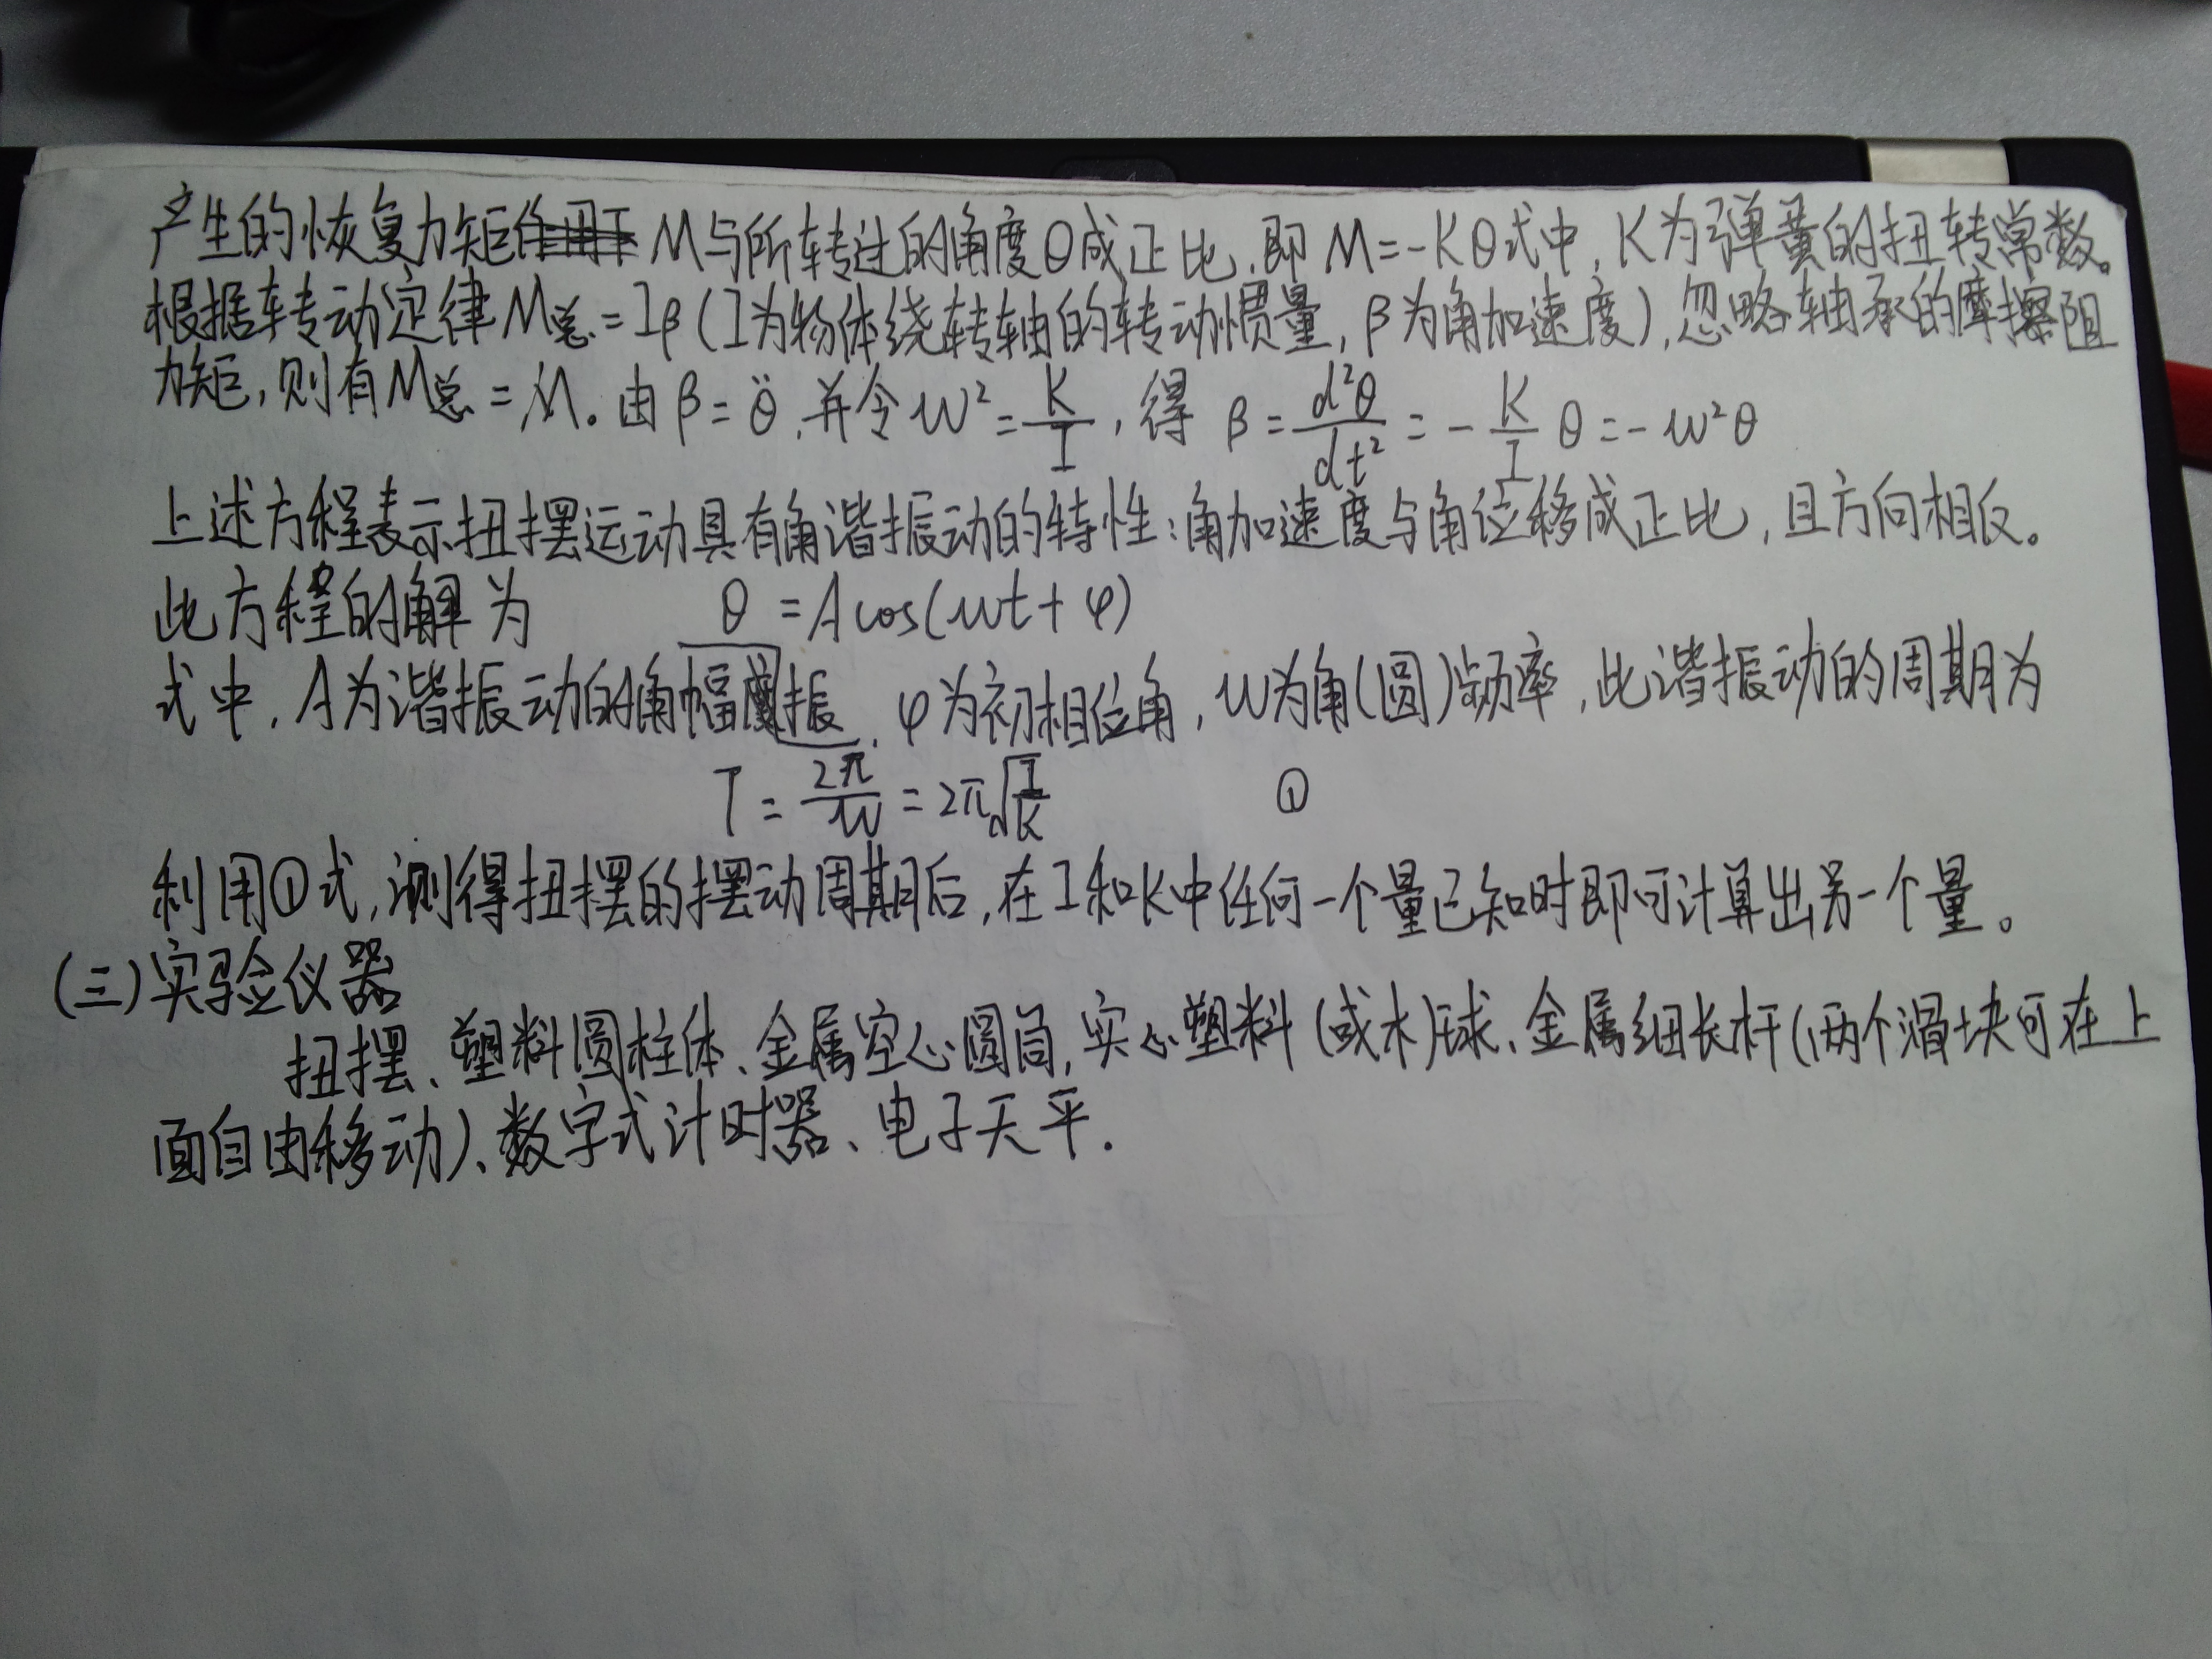 产生的恢复力矩M与所转过的角度θ成正比,即 M=-Kθ式中,K为弹簧的扭转常数。
根据转动定律M总=Iβ(I为物体绕转轴的转动惯量,β为角加速度),忽略轴承的摩擦阻
力矩,则有M总=M.由β=θ̈.并令w²=K/I,得 β=d²θ/dt²=-K/I θ=-w²θ
上述方程表示扭摆运动具有角谐振动的特性:角加速度与角位移成正比,且方向相反。
此方程的解为
θ=Acos(wt+φ)
式中,A为谐振动的角振幅,φ为初相位角,w为角(圆)频率,此谐振动的周期为
T=2π/w=2π√I/K ①
利用①式,测得扭摆的摆动周期后,在I和K中任何一个量已知时即可计算出另一个量。
(三)实验仪器
扭摆、塑料圆柱体、金属空心圆筒,实心塑料(或木)球、金属细长杆(两个滑块可在上
面自由移动)、数字式计时器、电子天平.